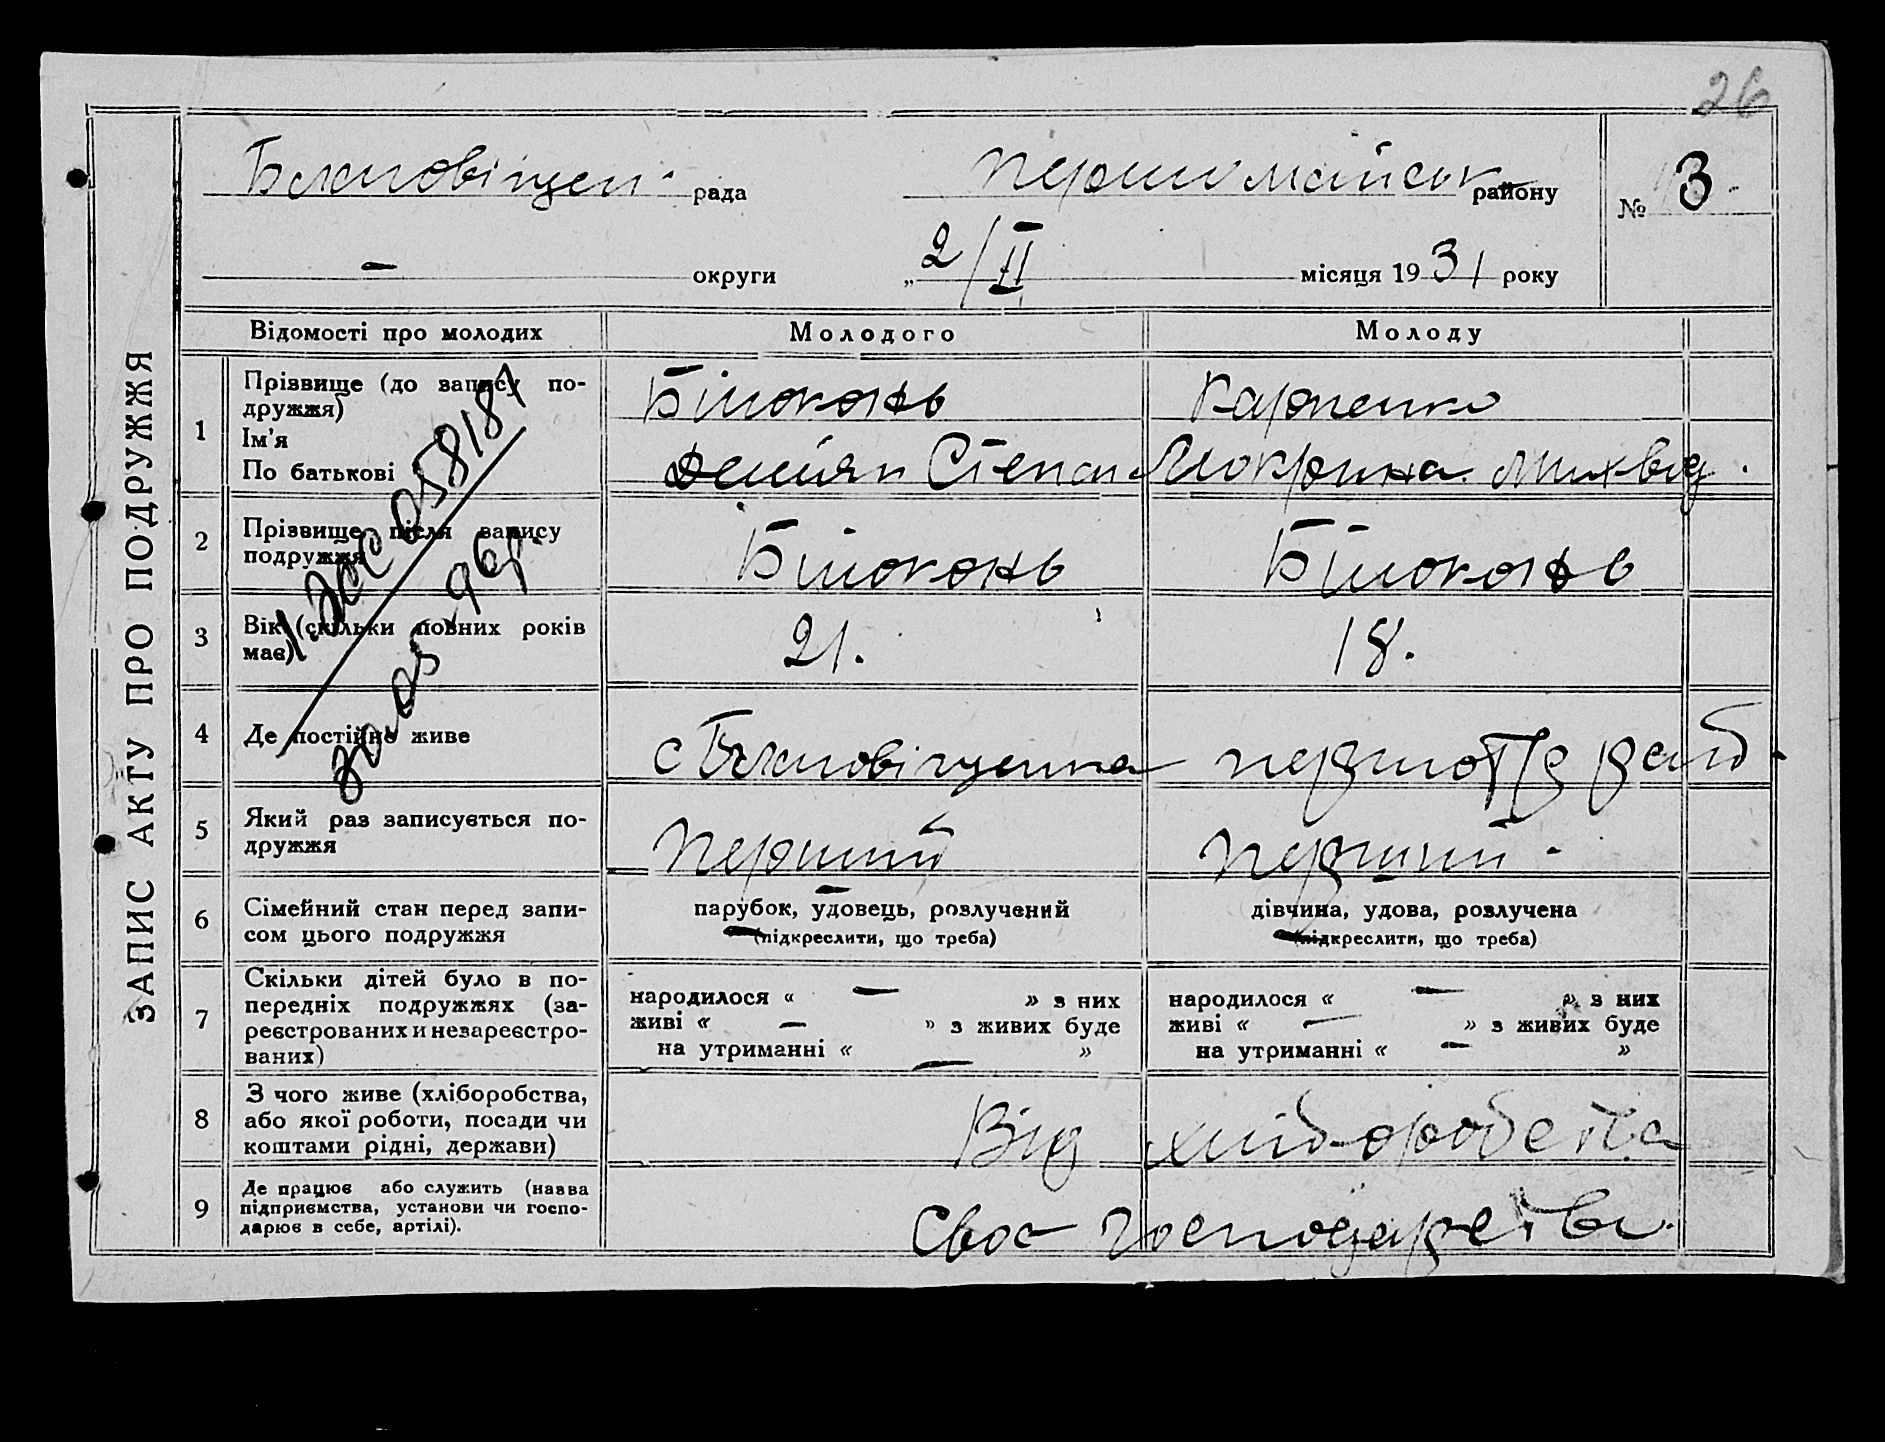 26
Благовіщен. рада Першомайськ району № 3.
— округи „ 2/II місяця 1931 року
ЗАПИС АКТУ ПРО ПОДРУЖЖЯ
Відомості про молодих Молодого Молоду
1 Прізвище (до запису по-
дружжя) Білоконь Карпенко
Ім'я
По батькові Деміян Степан Мокрина Мих-вна
2 Прізвище після запису
подружжя Білоконь Білоконь
3 Вік (скільки повних років
має) 21. 18.
4 Де постійно живе с Благовіщенка
5 Який раз записується по-
дружжя Перший Перший
6 Сімейний стан перед запи- парубок, удовець, розлучений дівчина, удова, розлучена
сом цього подружжя (підкреслити, що треба) (підкреслити, що треба)
7 Скільки дітей було в по-
передніх подружжях (за- народилося « — » з них народилося « — » з них
реєстрованих и незареєстро- живі « — » з живих буде живі « — » з живих буде
ваних) на утриманні « — » на утриманні « — »
8 З чого живе (хліборобства,
або якої роботи, посади чи Від хліборобства
коштами рідні, держави)
9 Де працює або служить (назва
підприємства, установи чи госпо- Своє Господарство.
дарює в себе, артілі).